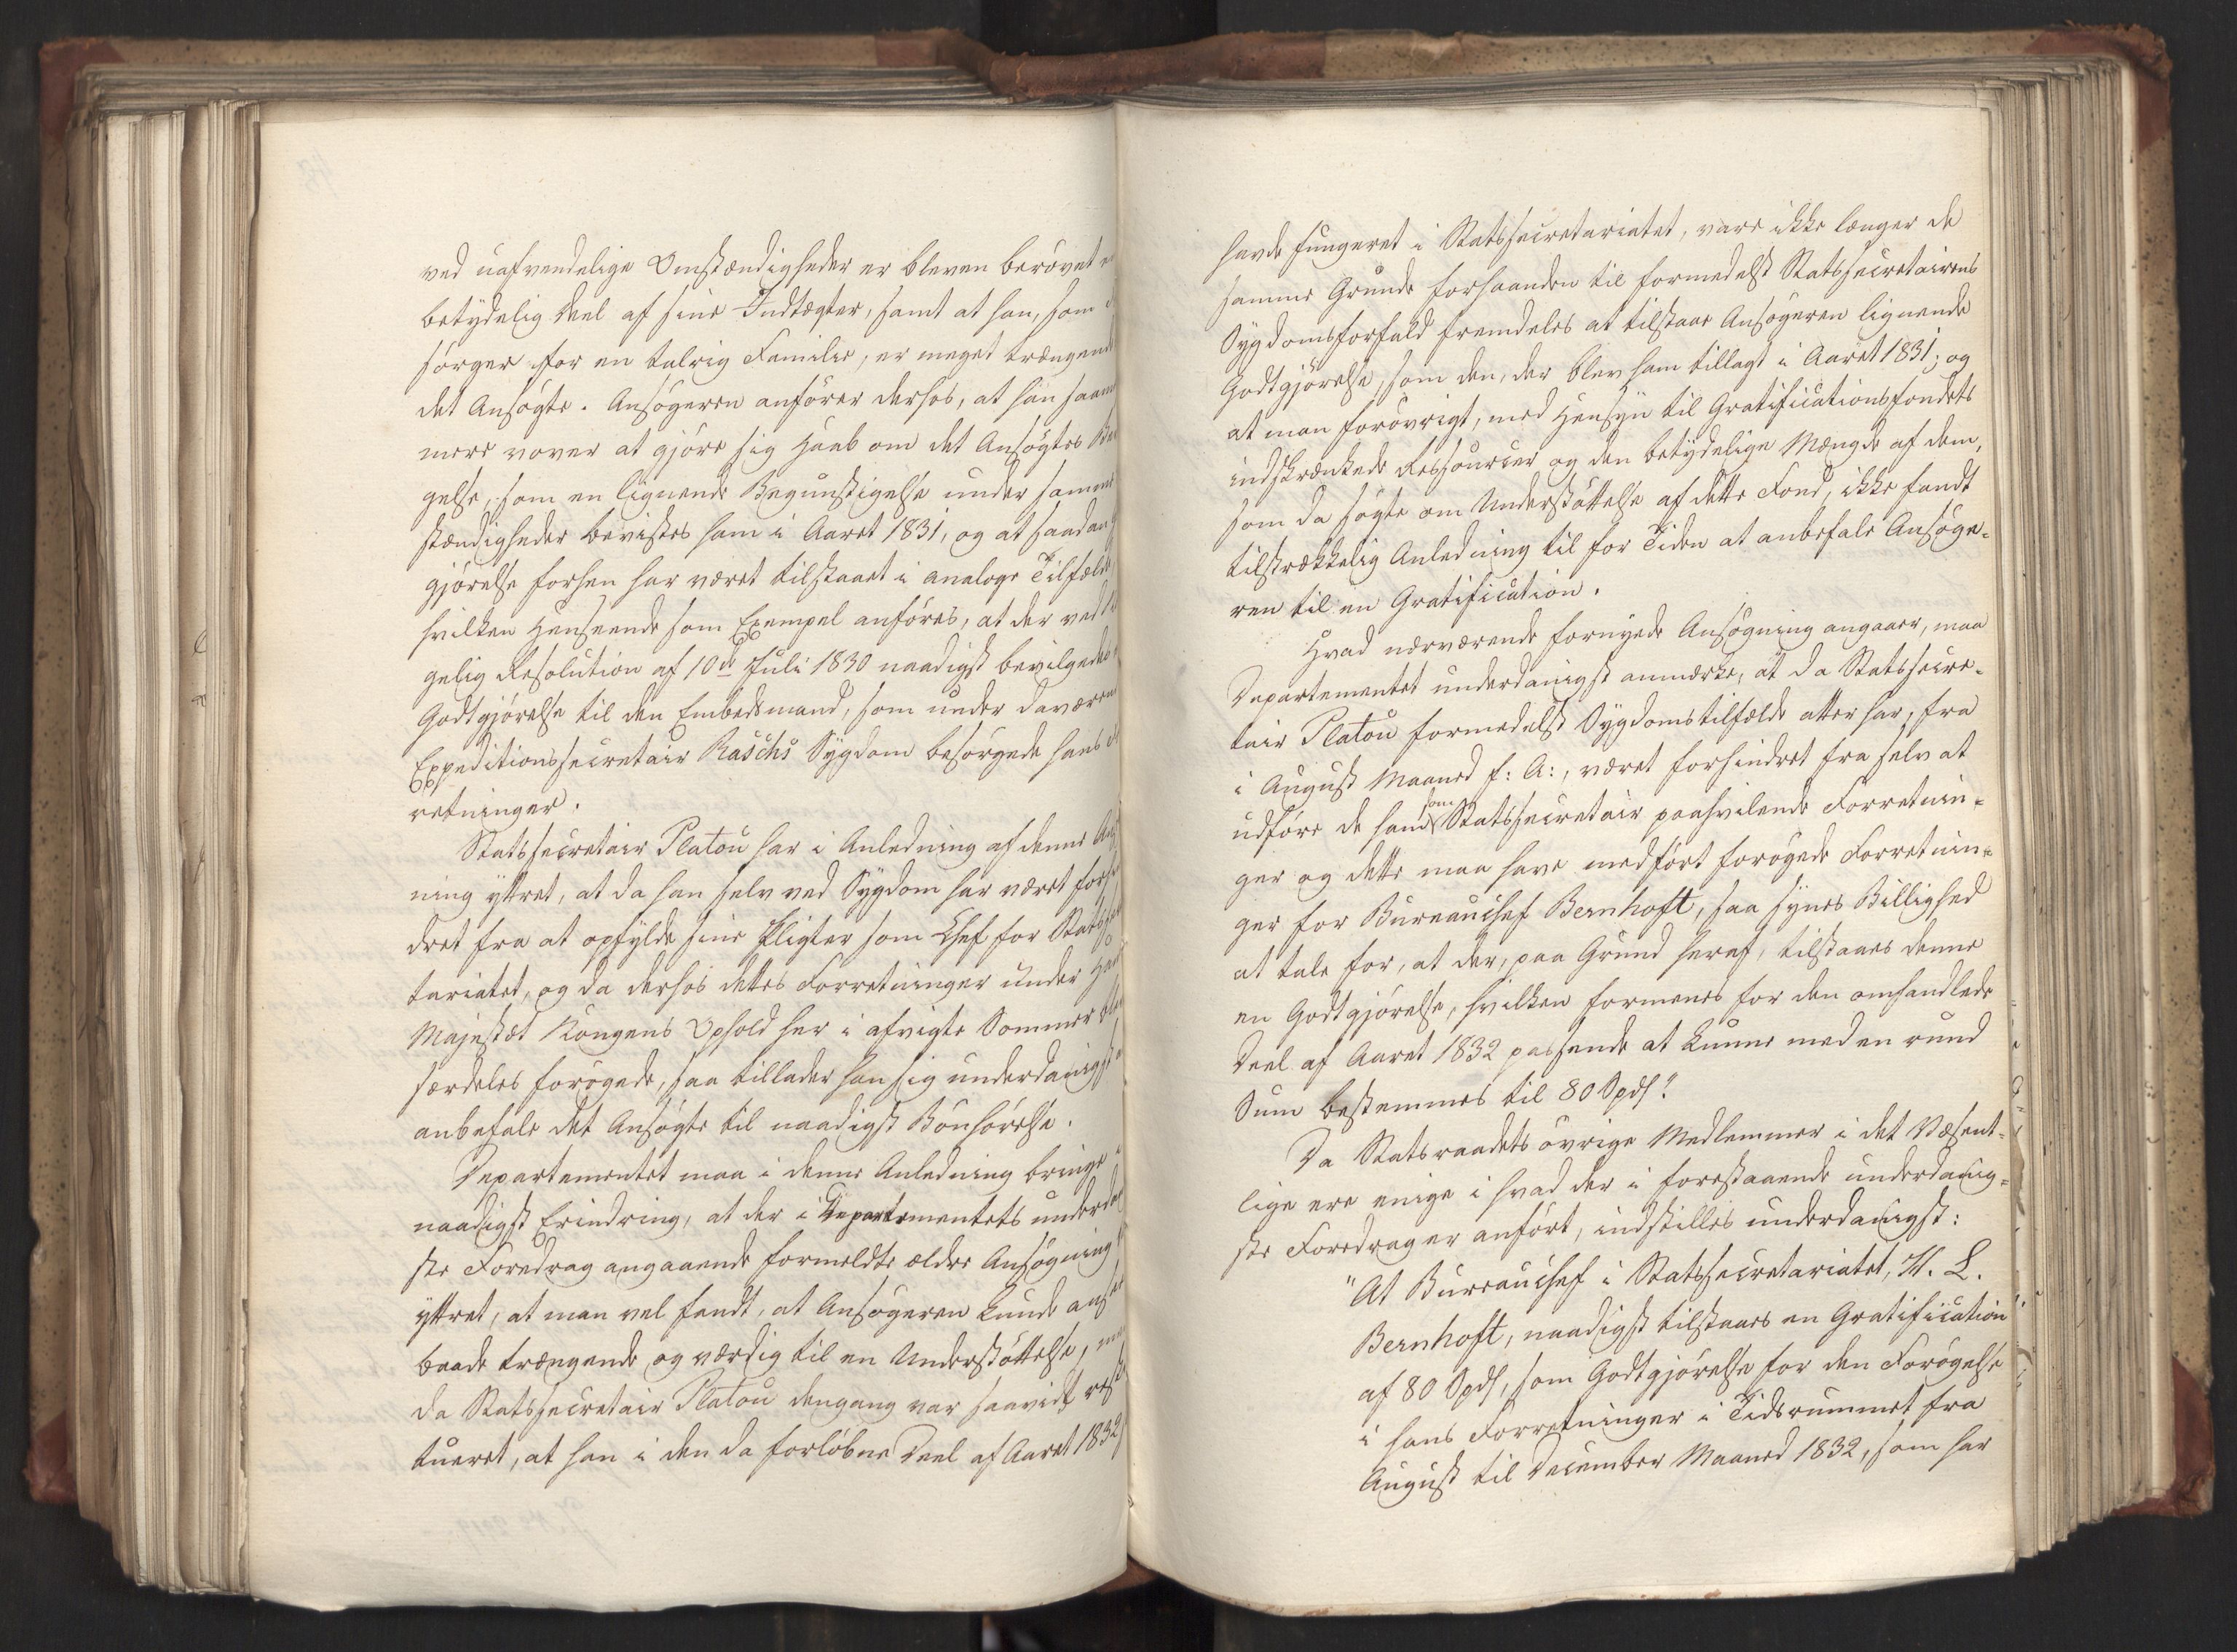 ved uafvendelige Omstændigheder er bleven berøvet
betydelig Deel af sine Indtægter, samt at han, som
sørger for en talrig Familie, er meget trængende
det Ansøgte. Ansøgeren anfører derhos, at han saa
mere vover at gjøre sig Haab om det Ansøgtes
gelse, som en lignende Begunstigelse under samme
stændigheder bevistes ham i Aaret 1831, og at saadan
gjørelse forhen har været tilstaaet i analoge Tilfælde
hvilken Henseende som Exempel anføres, at der ved
gelig Resolution af 10de Juli 1830 naadigst bevilgedes
Godtgjørelse til den Embedsmand, som under daværende
Expeditionssecretair Raschs Sygdom besørgede hans
retninger.
Statssecretair Platou har i Anledning af denne
ning yttret, at da han selv ved Sygdom har været
dret fra at opfylde sine Pligter som Chef for Stats
tariatet, og da derhos dettes Forretninger under
Majestæt Kongens Ophold her i afvigte Sommer
særdeles forøgede, saa tillader han sig underdanigst
anbefale det Ansøgte til naadigst Bønhørelse.
Departementet maa i denne Anledning bringe i
naadigst Erindring, at der i Departementets underda
ste Foredrag angaaende formeldte ældre Ansøgning
yttret, at man vel fandt, at Ansøgeren kunde ansees
baade trængende og værdig til en Understøttelse, men
da Statssecretair Platou dengang var saavidt resti
tueret, at han i den da forløbne Deel af Aaret 1832
havde fungeret i Statssecretariatet, vare ikke længer de
samme Grunde forhaanden til formedelst Statssecretairens
Sygdomsforfald fremdeles at tilstaae Ansøgeren lignende
Godtgjørelse, som den, der blev ham tillagt i Aaret 1831; og
at man forøvrigt, med Hensyn til Gratificationsfondets
indskrænkede Ressourcer og den betydelige Mængde af dem,
som da søgte om Understøttelse af dette Fond, ikke fandt
tilstrækkelig Anledning til for Tiden at anbefale Ansøge-
ren til en Gratification.
Hvad nærværende fornyede Ansøgning angaaer, maa
Departementet underdanigst anmærke, at da Statssecre-
tair Platou formedelst Sygdomstilfælde atter har, fra
i August Maaned f: A:, været forhindret fra selv at
udføre de ham som Statssecretair paahvilende Forretnin-
ger og dette maa have medført forøgede Forretnin-
ger for Bureauchef Bernhoft, saa synes Billighed
at tale for, at der, paa Grund heraf, tilstaaes denne
en Godtgjørelse, hvilken formenes for den omhandlede
Deel af Aaret 1832 passende at kunne med en rund
Sum bestemmes til 80 Spdl."
Da Statsraadets øvrige Medlemmer i det Væsent-
lige ere enige i hvad der i forestaaende underdanig-
ste Foredrag er anført, indstilles underdanigst:
"At Bureauchef i Statssecretariatet, H. L.
Bernhoft, naadigst tilstaaes en Gratification
af 80 Spdl, som Godtgjørelse for den Forøgelse
i hans Forretninger i Tidsrummet fra
August til December Maaned 1832, som har